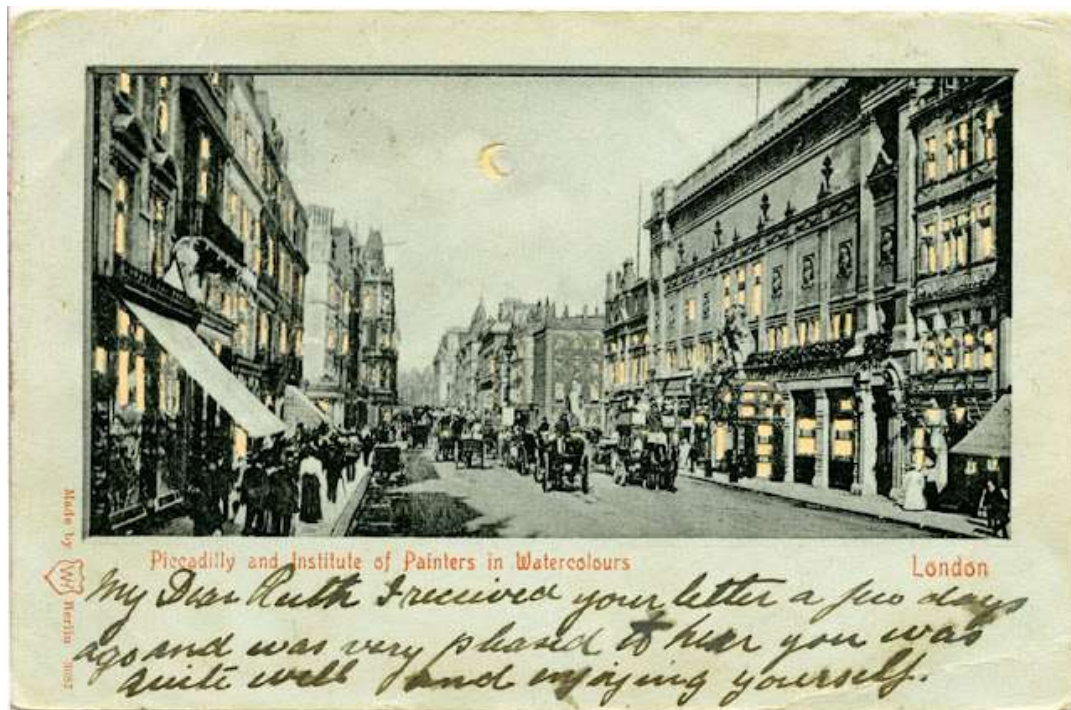 Piccadilly and Institute of Painters in Watercolours
London
My Dear Ruth I received your letter a few days
ago and was very pleased to hear you was
quite well and enjoying yourself.
Made by W Berlin